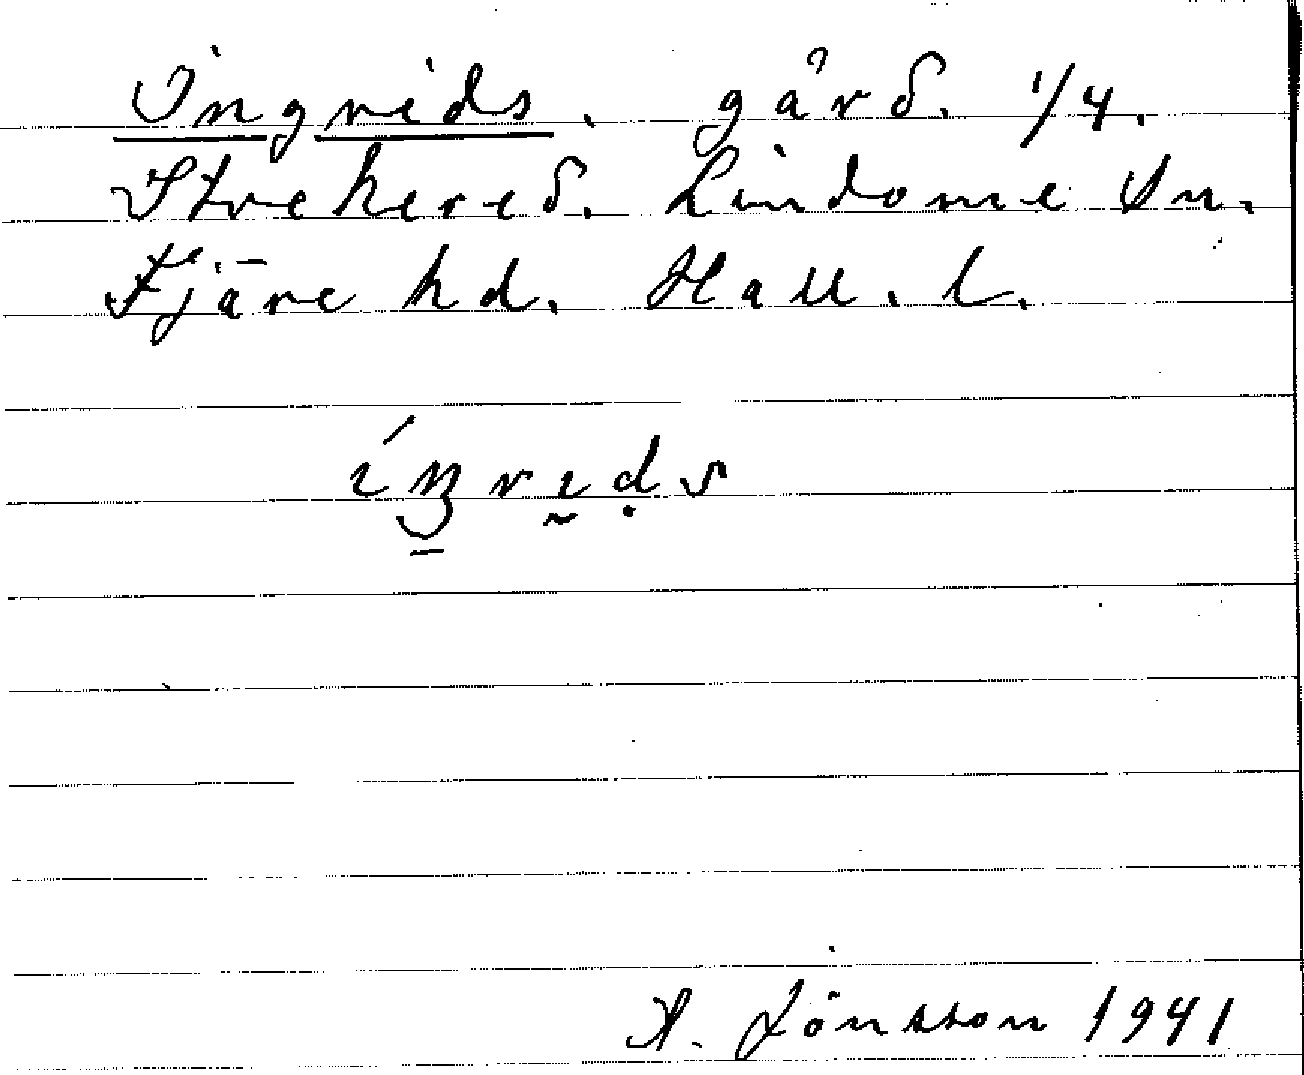 Ingrids. gård. 1/4.
Strekered. Lindome Sn.
Fjäre hd. Hall. l.
A. Jönsson 1941